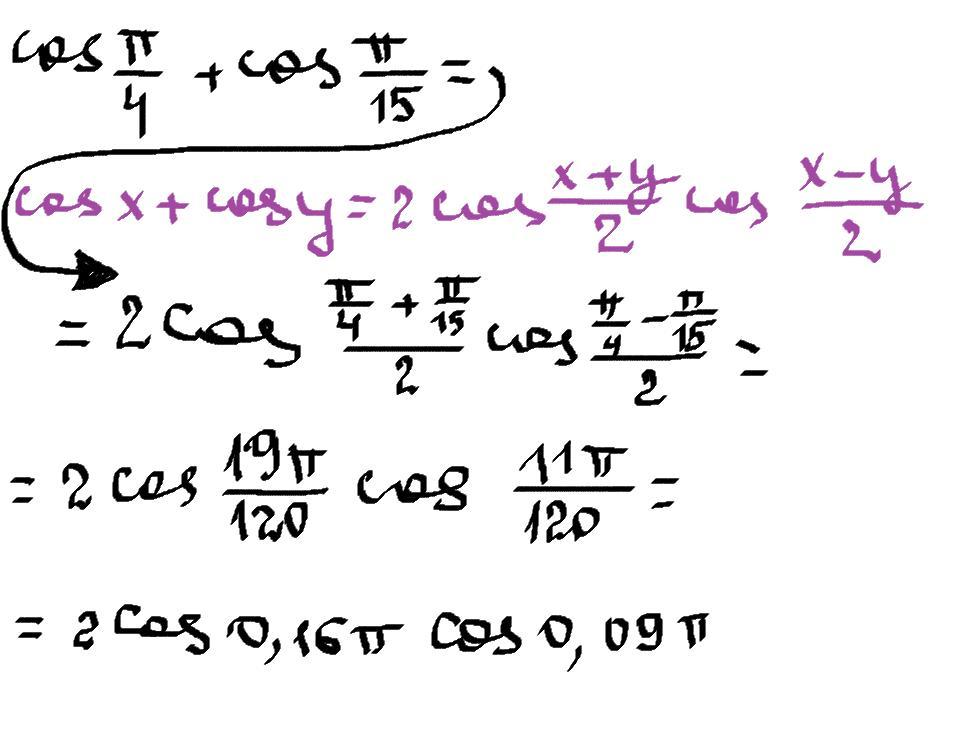 cos π/4 + cos π/15 =
cos x + cos y = 2 cos (x + y)/2 cos (x − y)/2
= 2 cos (π/4 + π/15)/2 cos (π/4 − π/15)/2 =
= 2 cos 19π/120 cos 11π/120 =
= 2 cos 0,16π cos 0,09π